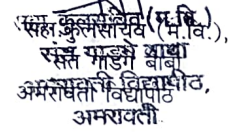 सहा. कुलसचिव (म.वि.),
संत गाडगे बाबा
अमरावती विद्यापीठ,
अमरावती